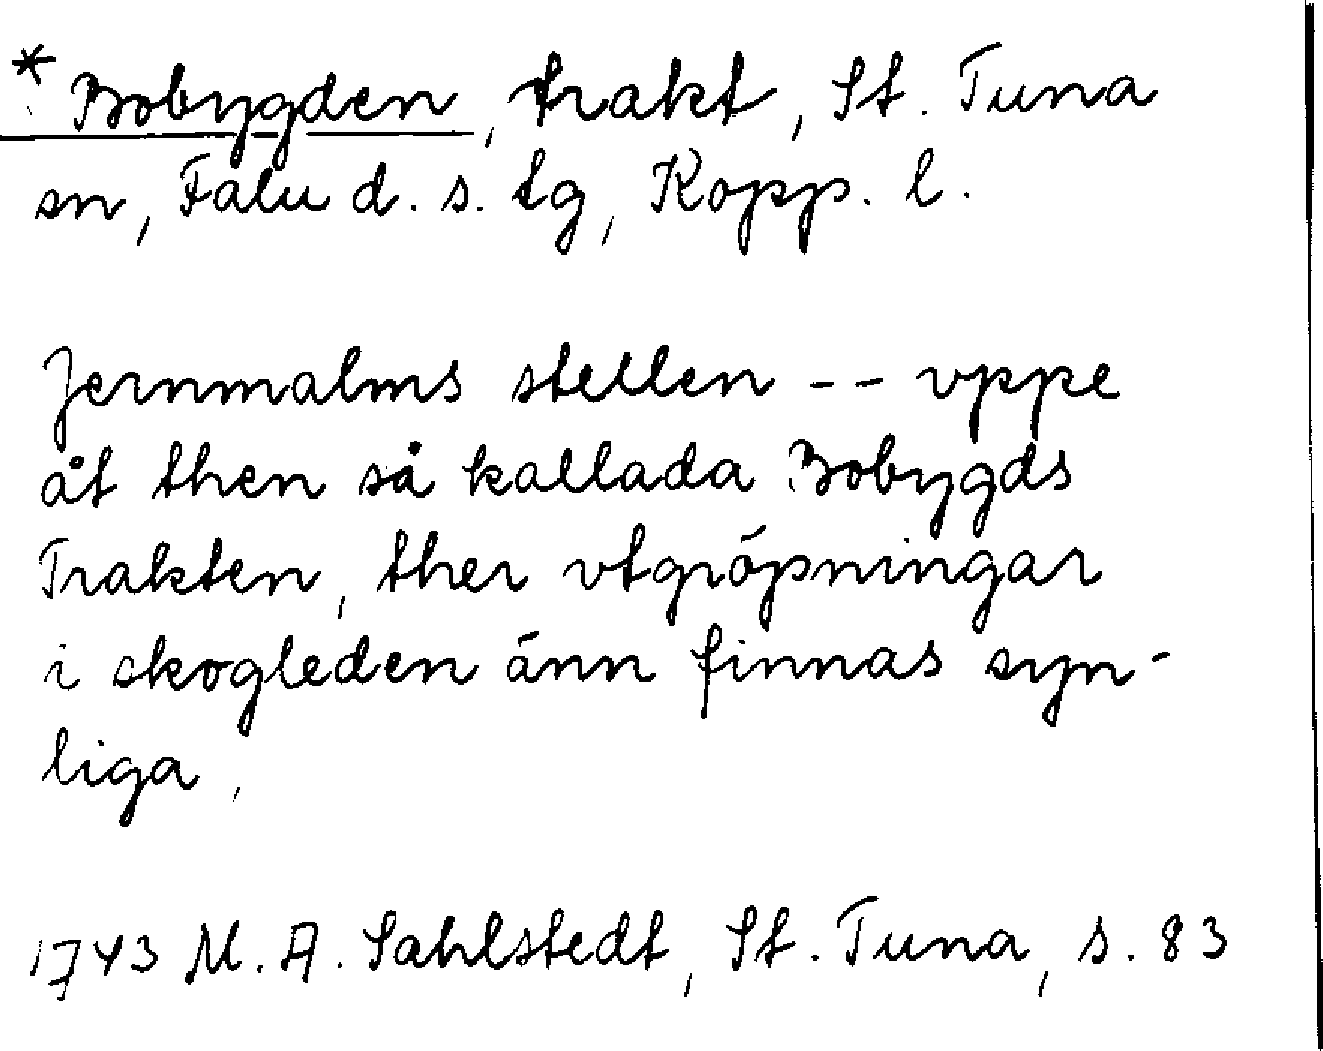 * Bobygden, trakt, St. Tuna
sn, Falu d. s. tg, Kopp. l.
Jernmalms stellen -- vppe
åt then så kallada Bobygds
Trakten, ther vtgröpningar
i skogleden änn finnas syn-
liga,
1743 M. A. Sahlstedt, St. Tuna, s. 83